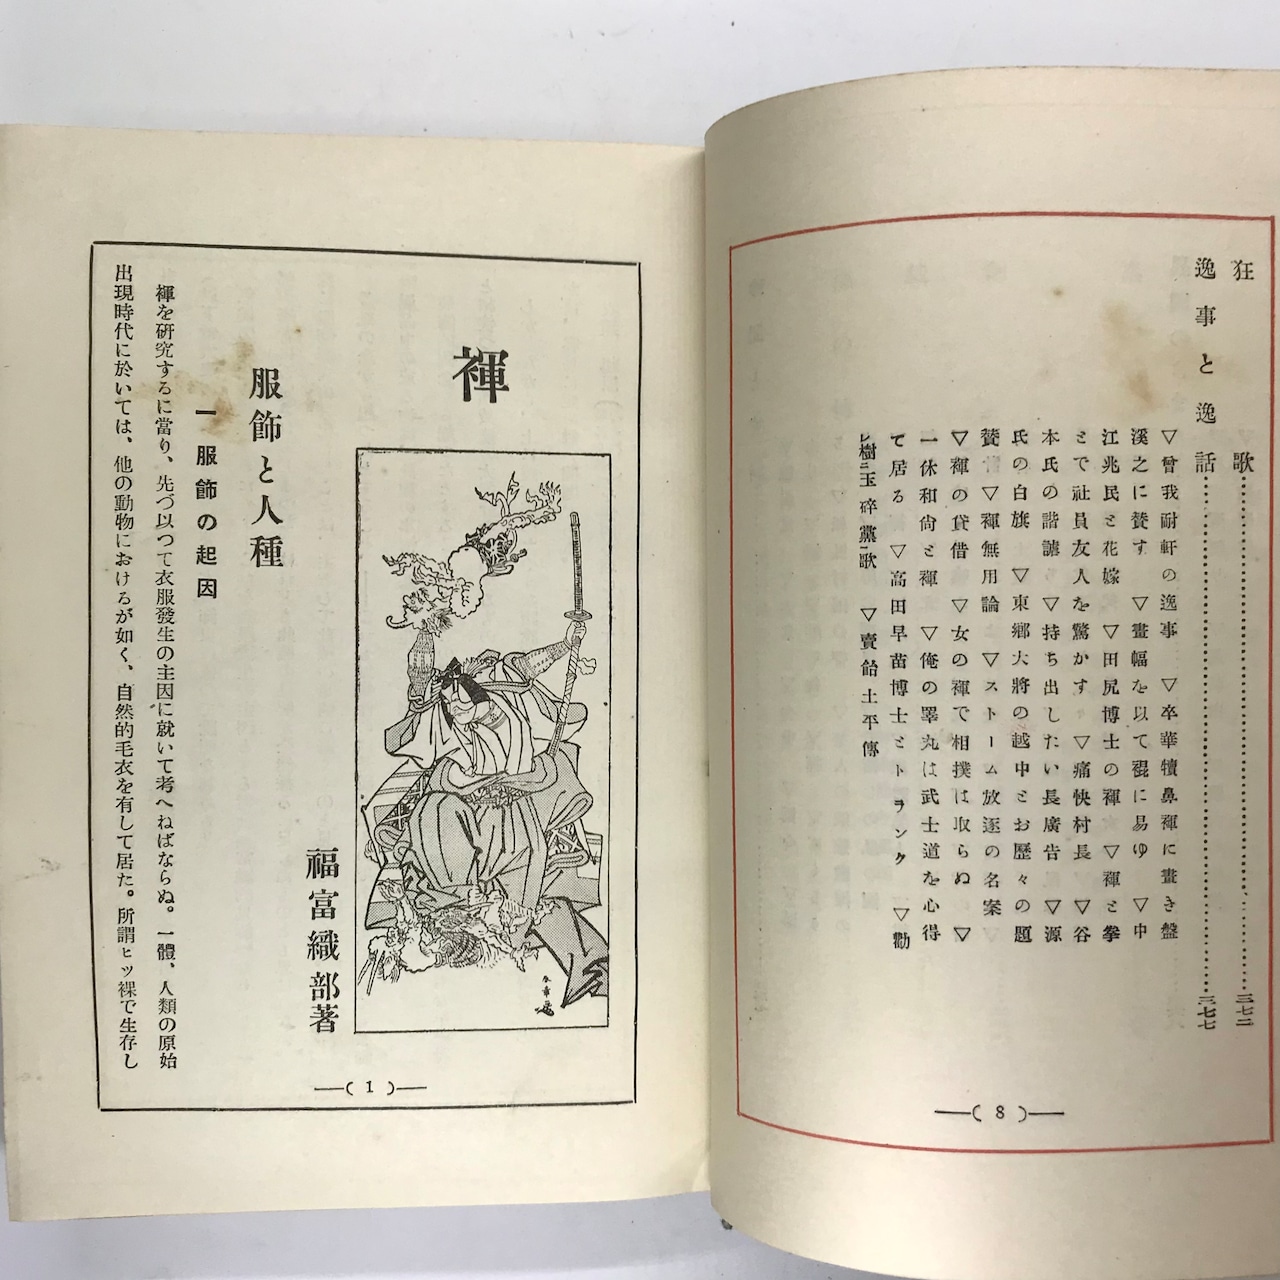 狂歌…………三七二
逸事と逸話…………三七七
▽曾我耐軒の逸事 ▽卒華犢鼻褌に畫き盤
溪之に贊す ▽畫幅を以て褌に易ゆ ▽中
江兆民と花嫁 ▽田尻博士の褌 ▽褌と拳
とで社員友人を驚かす ▽痛快村長 ▽谷
本氏の諧謔 ▽持ち出したい長廣告 ▽源
氏の白旗 ▽東郷大將の越中とお歷々の題
贊 ▽褌無用論 ▽ストーム放逐の名案
▽褌の貸借 ▽女の褌で相撲は取らぬ ▽
一休和尙と褌 ▽俺の睪丸は武士道を心得
て居る ▽高田早苗博士とトランク ▽勸
樹玉碎黨歌 ▽賣飴土平傳
―( 8 )―
褌
春章画
福富織部著
服飾と人種
一 服飾の起因
褌を硏究するに當り、先づ以つて衣服發生の主因に就いて考へねばならぬ。一體、人類の原始
出現時代に於いては、他の動物におけるが如く、自然的毛衣を有して居た。所謂ヒツ裸で生存し
―( 1 )―